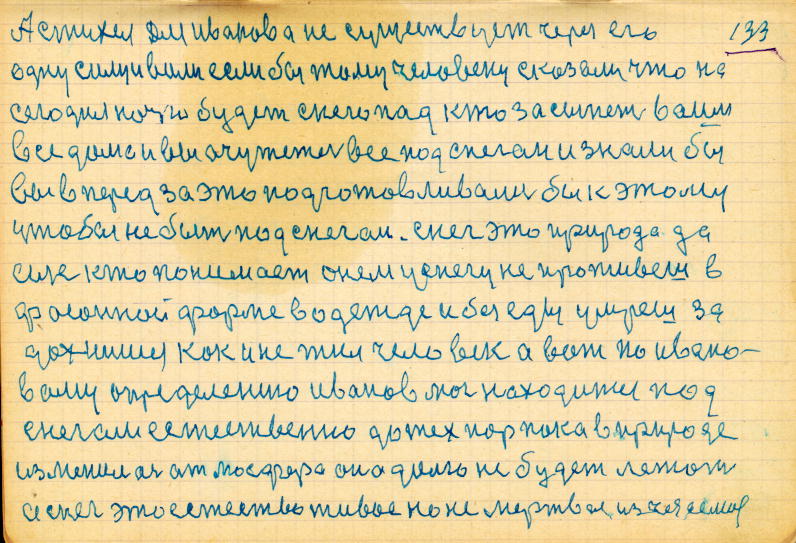 А стихея для иванова не существует через его 133
одну силу и воли если бы тому человеку сказали что на
сегодня ночю будет снегопад кто засыпет вами
все дома и вы очутетея все под снегам и знали бы
вы в перед за это подготовливали бы к этому
чтобы не быть под снегам. снег это природа да
силе кто понимает о нем у снегу не проживеш в
фасонной форме в одежде и без еды умреш за
дохниш кок и не жил человек а вот по ивано-
вому определению иванов мог находитця под
снегам естественно до тех пор пока в природе
изменилася атмосфера она долго не будет лежать
а снег это естество живое но не мертвае